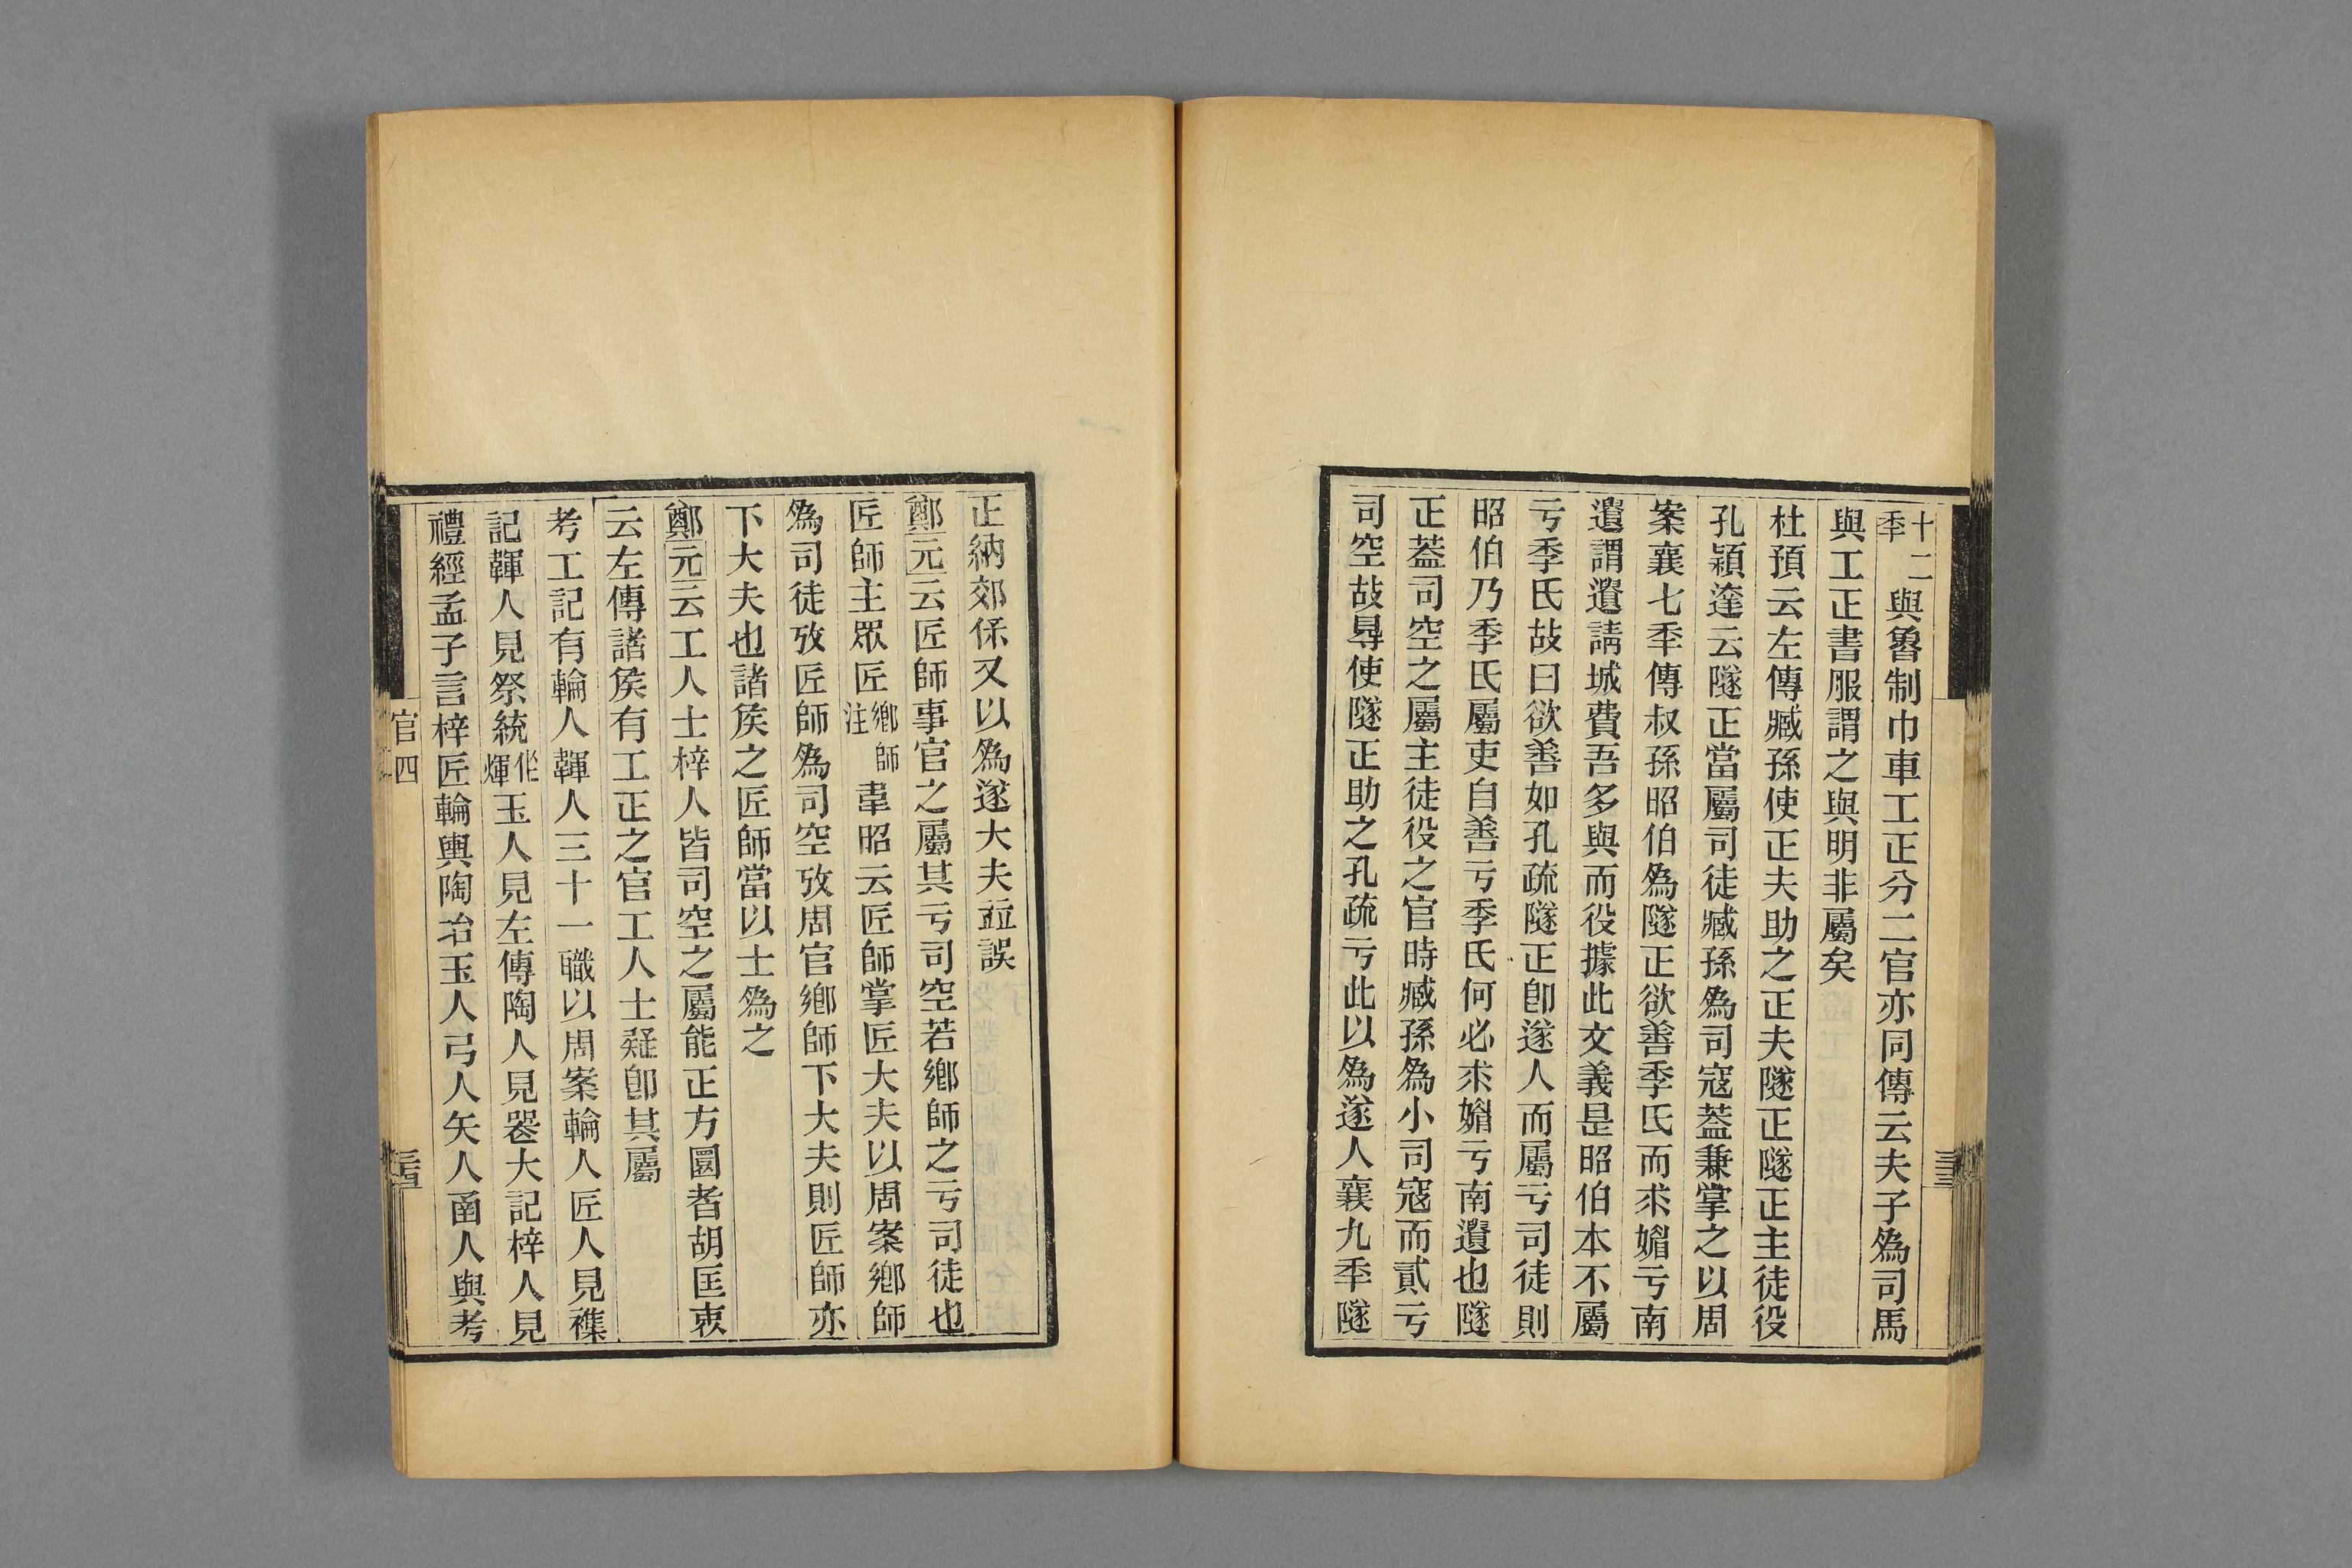 十二季與魯制巾車工正分二官亦同傳云夫子爲司馬
與工正書服謂之與明非屬矣
杜預云左傳臧孫使正夫助之正夫隧正隧正主徒役
孔穎達云隧正當屬司徒臧孫爲司寇蓋兼掌之以周
案襄七秊傳叔孫昭伯爲隧正欲善季氏而求媚亏南
遺謂遺請城費吾多與而役據此文義是昭伯本不屬
亏季氏故曰欲善如孔疏隧正卽遂人而屬亏司徒則
昭伯乃季氏屬吏自善亏季氏何必求媚亏南遺也隧
正蓋司空之屬主徒役之官時臧孫爲小司寇而貳亏
司空故㝵使隧正助之孔疏亏此以爲遂人襄九秊隧
正納郊保又以爲遂大夫並誤
鄭元云匠師事官之屬其亏司空若鄉師之亏司徒也
匠師主眾匠鄉師注韋昭云匠師掌匠大夫以周案鄉師
爲司徒攷匠師爲司空攷周官鄉師下大夫則匠師亦
下大夫也諸矦之匠師當以士爲之
鄭元云工人士梓人皆司空之屬能正方圜者胡匡衷
云左傳諸矦有工正之官工人士疑卽其屬
考工記有輪人韗人三十一職以周案輪人匠人見襍
記韗人見祭統作煇玉人見左傳陶人見喪大記梓人見
禮經孟子言梓匠輪輿陶冶玉人弓人矢人函人與考
官四